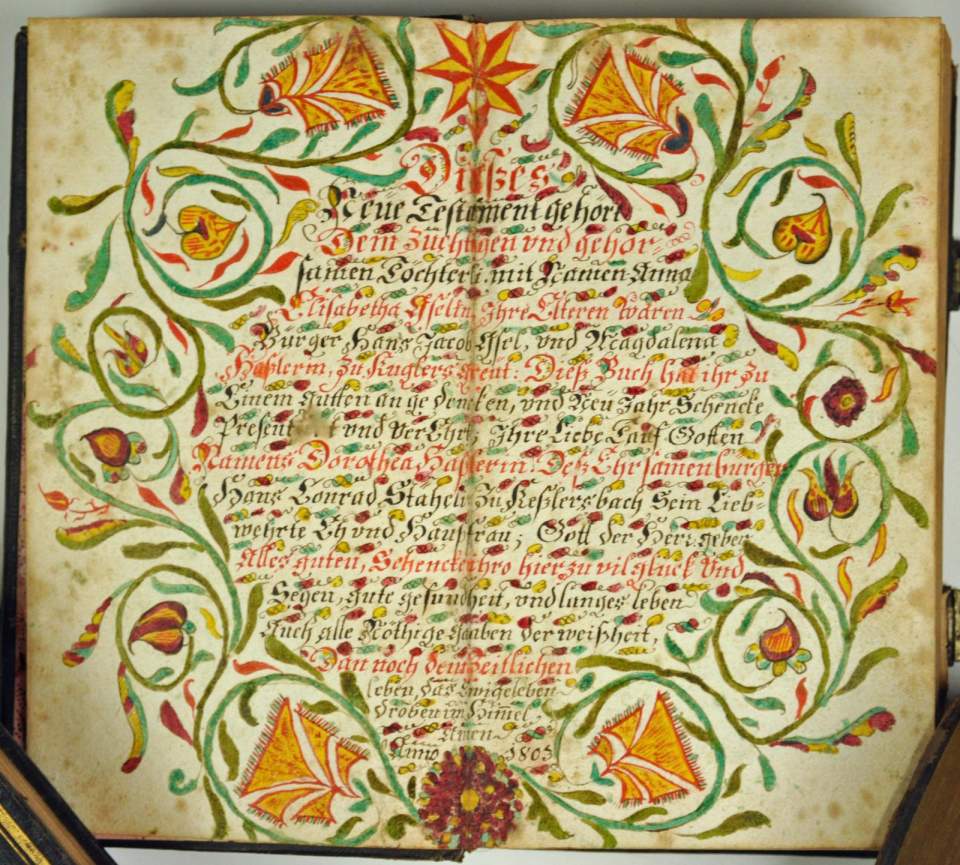 Dießes
Neue Testament gehört
Dem Züchtigen und gehor-
samen Töchterli mit Namen Anna
Elisabetha Ihre Elteren waren
Burger Hans Jacob Isel, und Magdalena
Haßlerin, zu Dieß Buch hat ihr zu
Einem gutten an ge dencken, und Neu Jahr Schencke
Present und verEhrt, Ihre Liebe Tauf Gotten
Namens Dorothea Haßlerin: Deß Ehrsamen burgers
Hans Conrad Staheli zu Keßlersbach Sein Lieb-
wehrte Eh und Hausfrau; Gott der Herr geben
Alles guten, Schencke ihro hier zu vil glück Und
Segen, gute gesundheit, und langes leben
Auch alle Nöthige gaaben der weißheit,
Dan noch dem Zeitlichen
leben, das Ewige leben
droben im Himel,
Amen
Anno 1803